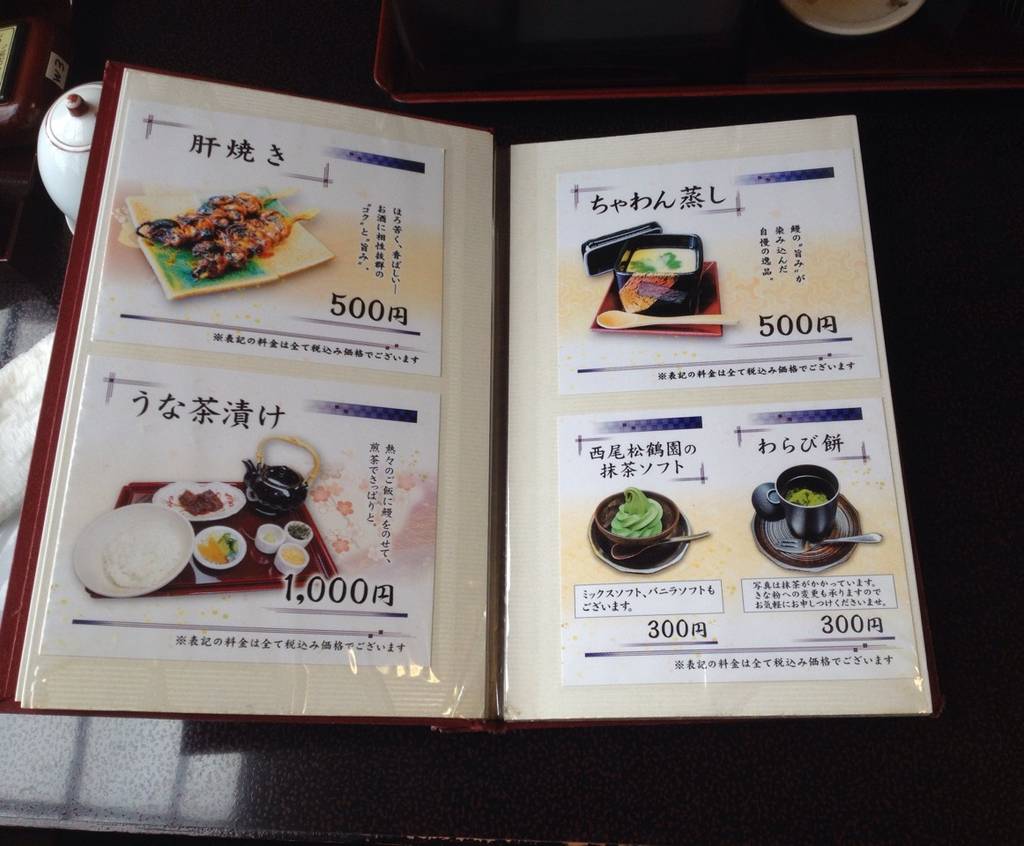 肝焼き
ほろ苦く、香ばしい―
お酒に相性抜群の
"コク"と"旨み"、
500円
※表記の料金は全て税込み価格でございます
うな茶漬け
熱々のご飯に鰻をのせて、
煎茶でさっぱりと。
1,000円
※表記の料金は全て税込み価格でございます
ちゃわん蒸し
鰻の"旨み"が
染み込んだ
自慢の逸品。
500円
※表記の料金は全て税込み価格でございます
西尾松鶴園の
抹茶ソフト
ミックスソフト、バニラソフトも
ございます。
300円
わらび餅
写真は抹茶がかかっています。
きな粉への変更も承りますので
お気軽にお申しつけくださいませ。
300円
※表記の料金は全て税込み価格でございます